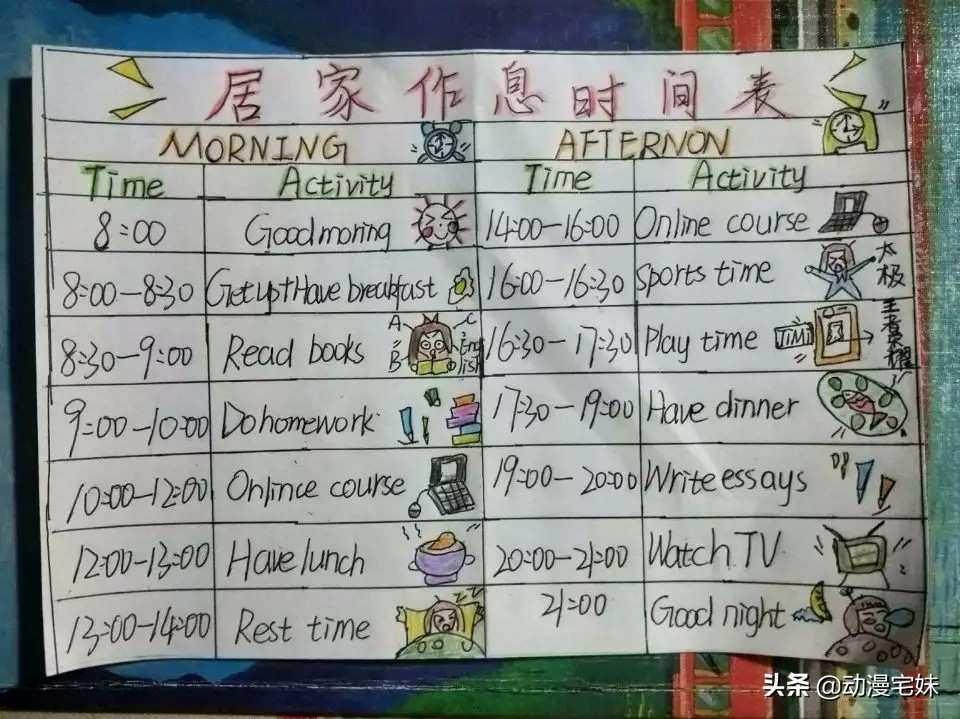 居家作息时间表
MORNING AFTERNON
Time Activity Time Activity
8:00 Good moring 14:00-16:00 Online course
8:00-8:30 Get up+Have breakfast 16:00-16:30 Sports time 太极
8:30-9:00 Read books A B C English 16:30-17:30 Play time TIMI 王者荣耀
9:00-10:00 Do homework 17:30-19:00 Have dinner
10:00-12:00 Onlince course 19:00-20:00 Write essays
12:00-13:00 Have lunch 20:00-21:00 Watch TV
13:00-14:00 Rest time zz 21:00 Good night
头条 @动漫宅妹